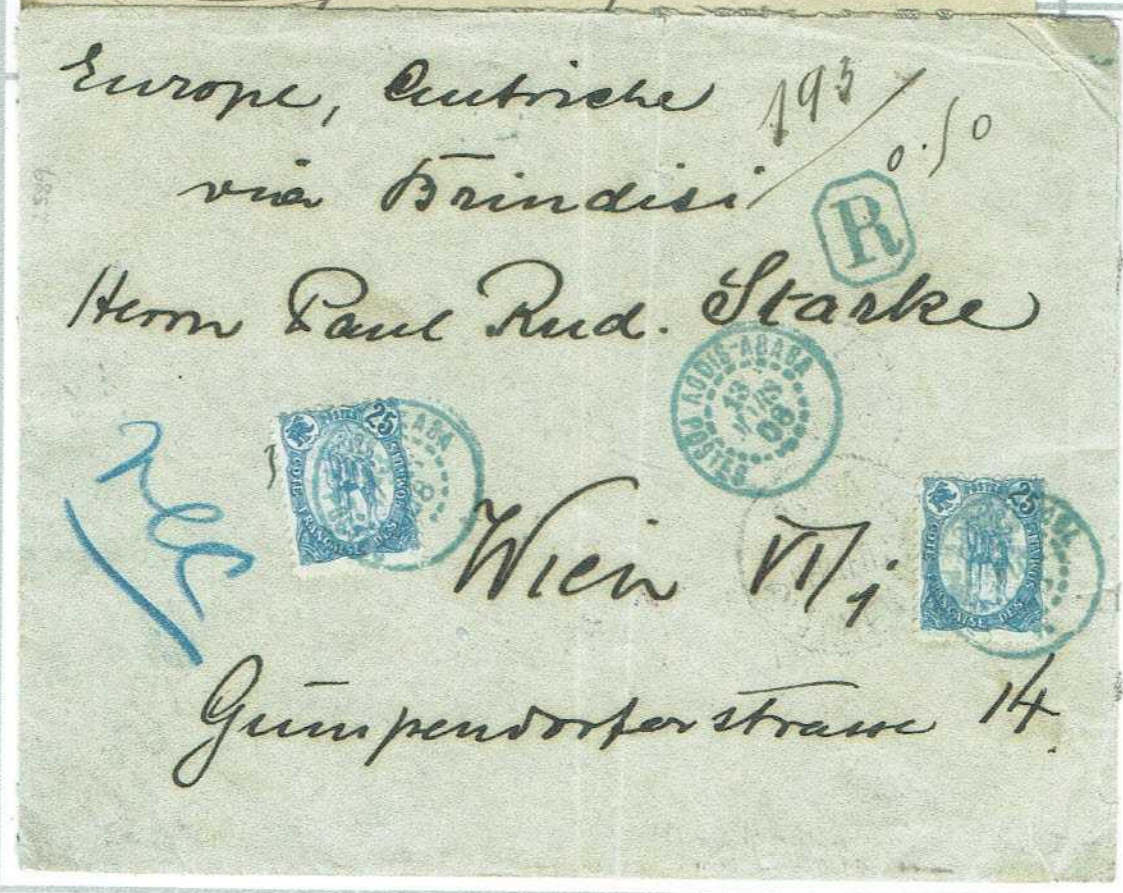 Europe, Autriche
193
0.50
via Brindisi
R
Herrn Paul Rud. Starke
ADDIS-ABABA
13
08
POSTES
25
POSTES
CÔTE FRANÇAISE DES SOMALIS
25
POSTES
CÔTE FRANÇAISE DES SOMALIS
Wien VI/1
Gumpendorferstrasse 14.